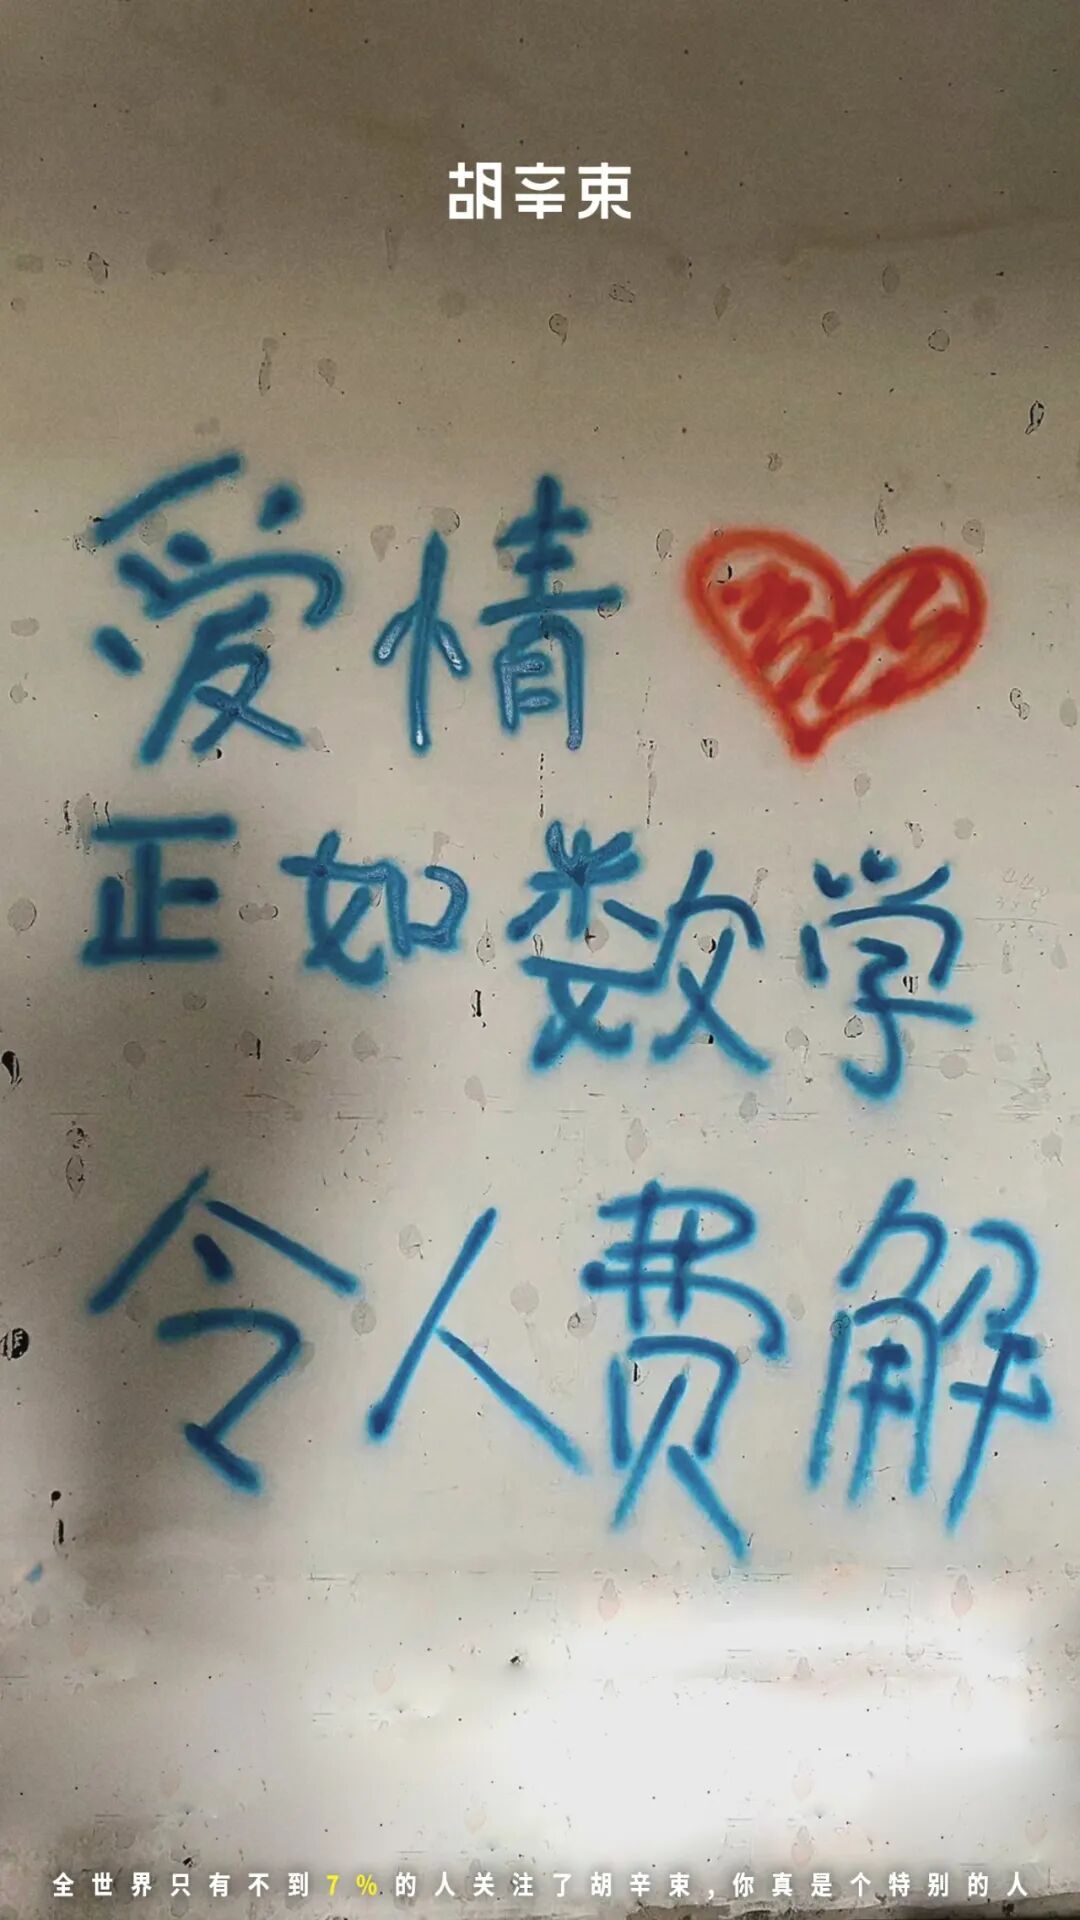 胡辛束
爱情
正如数学
令人费解
全世界只有不到7%的人关注了胡辛束,你真是个特别的人